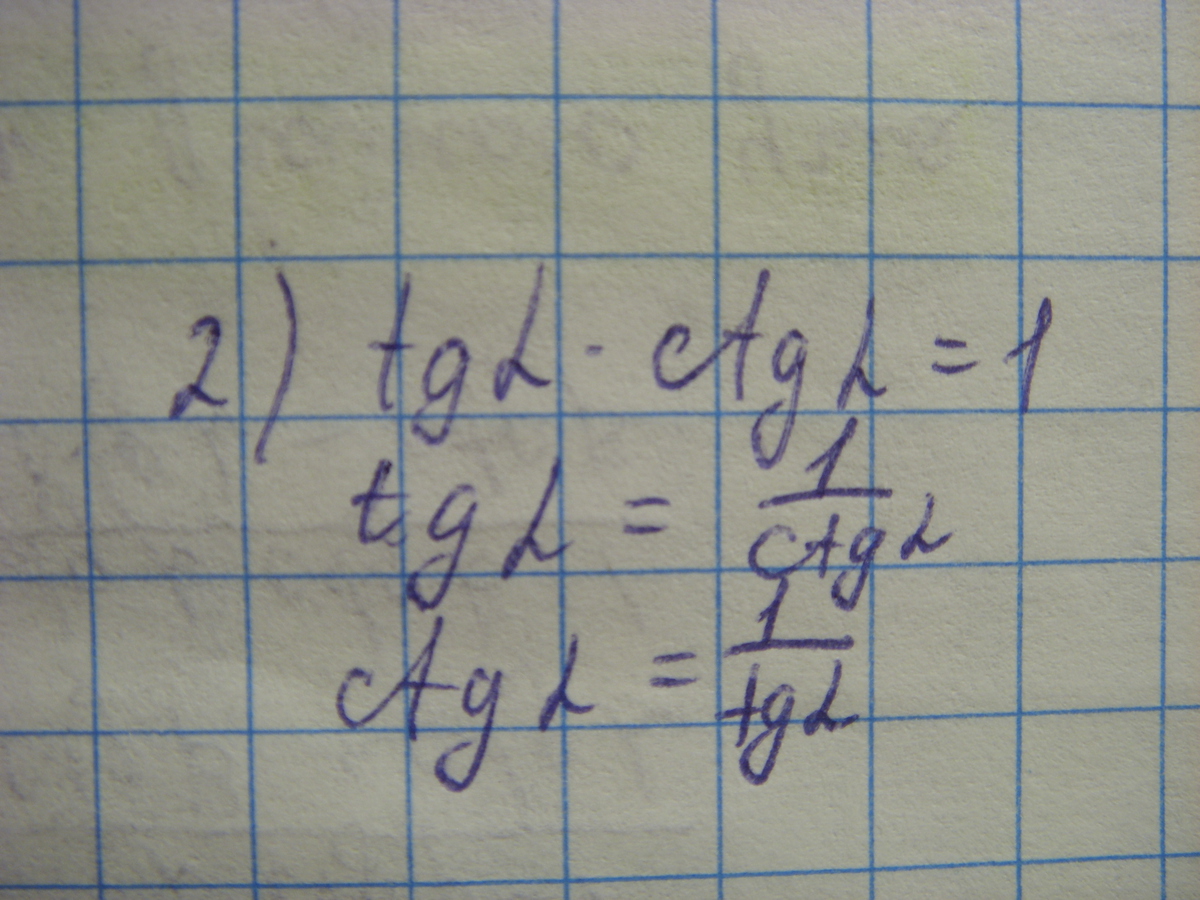 2) tg α · ctg α = 1
tg α = 1/ctg α
ctg α = 1/tg α